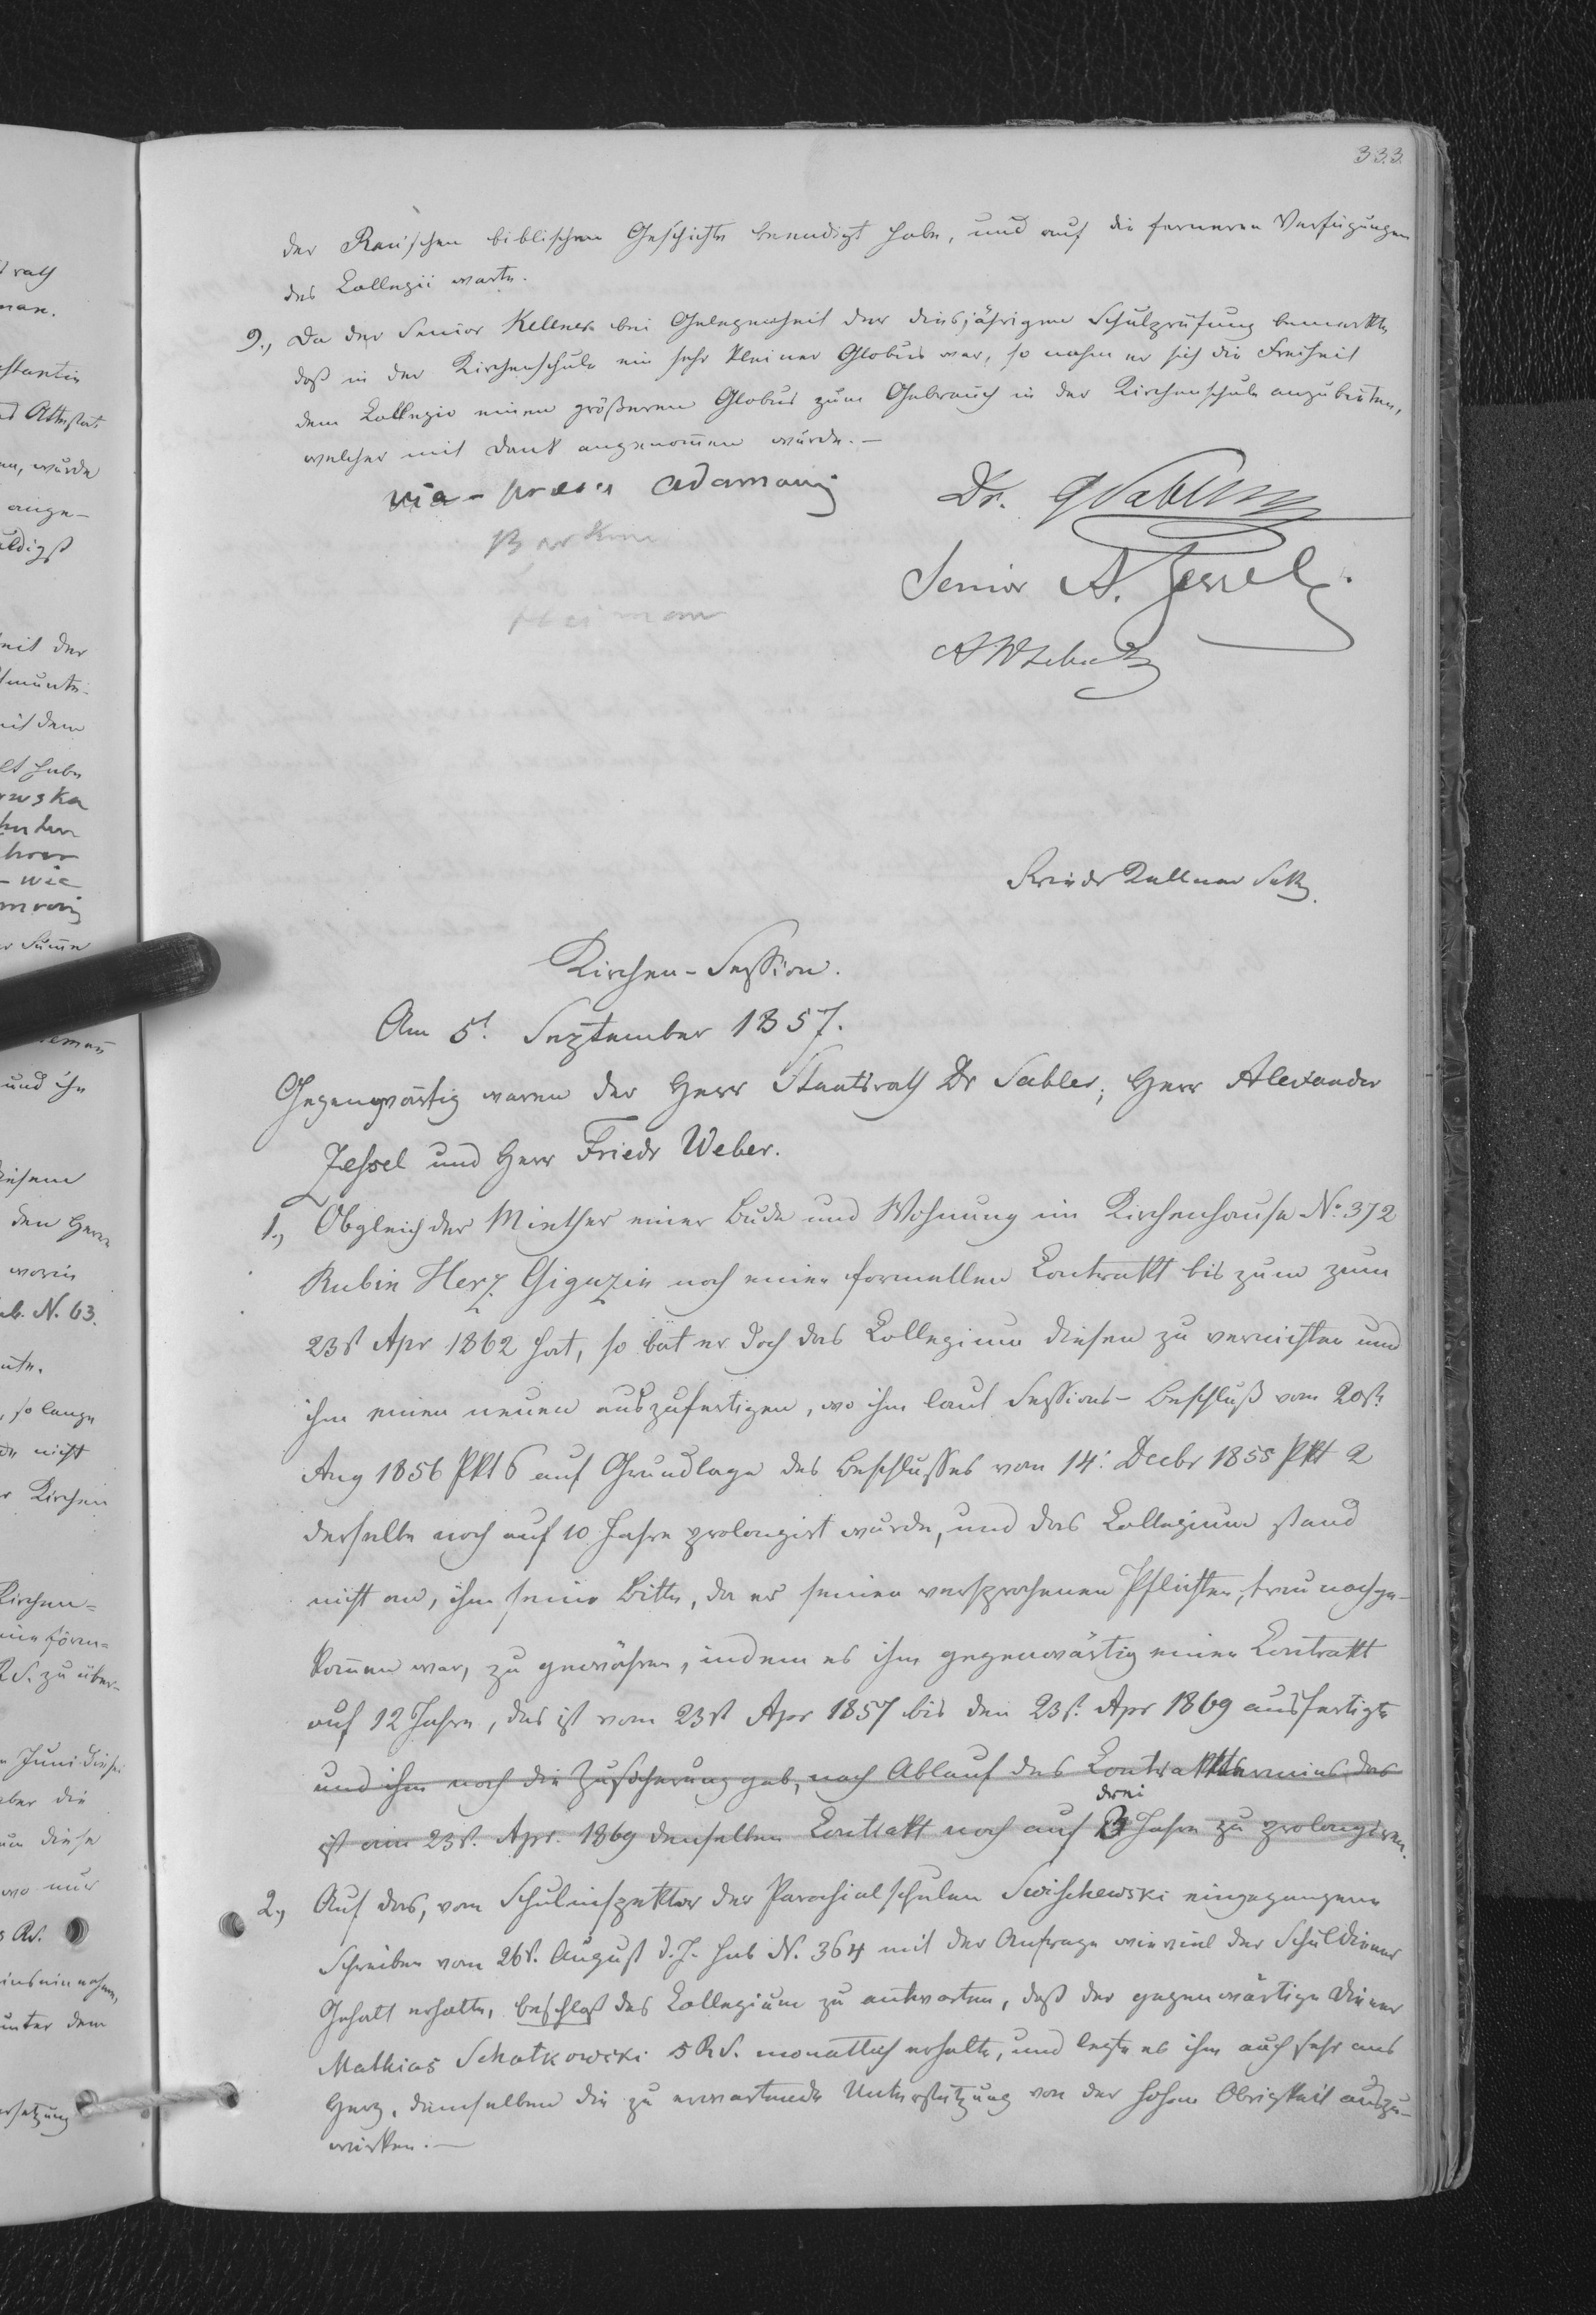 333.
der Rau'schen biblischen Geschichte beendigt habe, und auf die ferneren Verfügungen
des Collegii warte.
9., Da der Senior Kellner bei Gelegenheit der diesjährigen Schulprüfung bemerkte,
daß in der Kirchenschule ein sehr kleiner Globus war, so nahm er sich die Freiheit
dem Collegio einen größeren Globus zum Gebrauch in der Kirchenschule anzubieten,
welcher mit Dank angenom̄en wurde. —
Dr. GSabler
Senior A. Jessel
Friedr Kellner
Kirchen-Session.
Am 5t. September 1857.
Gegenwärtig waren der Herr Staatsrath Dr Sabler; Herr Alexander
Jessel und Herr Friedr Weber.
1., Obgleich der Miether einer Bude und Wohnung im Kirchenhause No. 372
Rubin Herz Giguzin noch einen formellen Contrakt bis zum zum
23st Apr 1862 hat, so bat er doch das Collegium diesen zu vernichten und
ihm einen neuen auszufertigen, wo ihm laut Sessions-Beschluß vom 20st.
Aug 1856 Pkt 6 auf Grundlage des Beschlusses vom 14. Decbr 1855 Pkt 2
derselbe noch auf 10 Jahre prolongirt wurde, und das Collegium stand
nicht an, ihm seine Bitte, da er seinen versprochenen Pflichten, treu nachge-
kom̄en war, zu gewähren, indem es ihm gegenwärtig einen Contrakt
auf 12 Jahre, das ist vom 23st Apr 1857 bis den 23st. Apr 1869 ausfertigte
und ihm noch die Zusicherung gab, nach Ablauf des Contrakttermins das
drei
ist am 23st. Apr. 1869 denselben Contrakt noch auf 3 Jahre zu prolongiren.
2., Auf das, vom Schulinspektor der Parochialschulen Swischewski eingegangene
Schreiben vom 26st. August d. J. sub N. 364 mit der Anfrage wieviel der Schuldiener
Gehalt erhalte, beschloß das Collegium zu antworten, daß der gegenwärtige Diener
Mathias Schatkowski 5 RS. monatlich erhalte, und legte es ihm auch sehr ans
Herz, demselben die zu erwartende Unterstützung von der hohen Obrigkeit auszu-
wirken. —